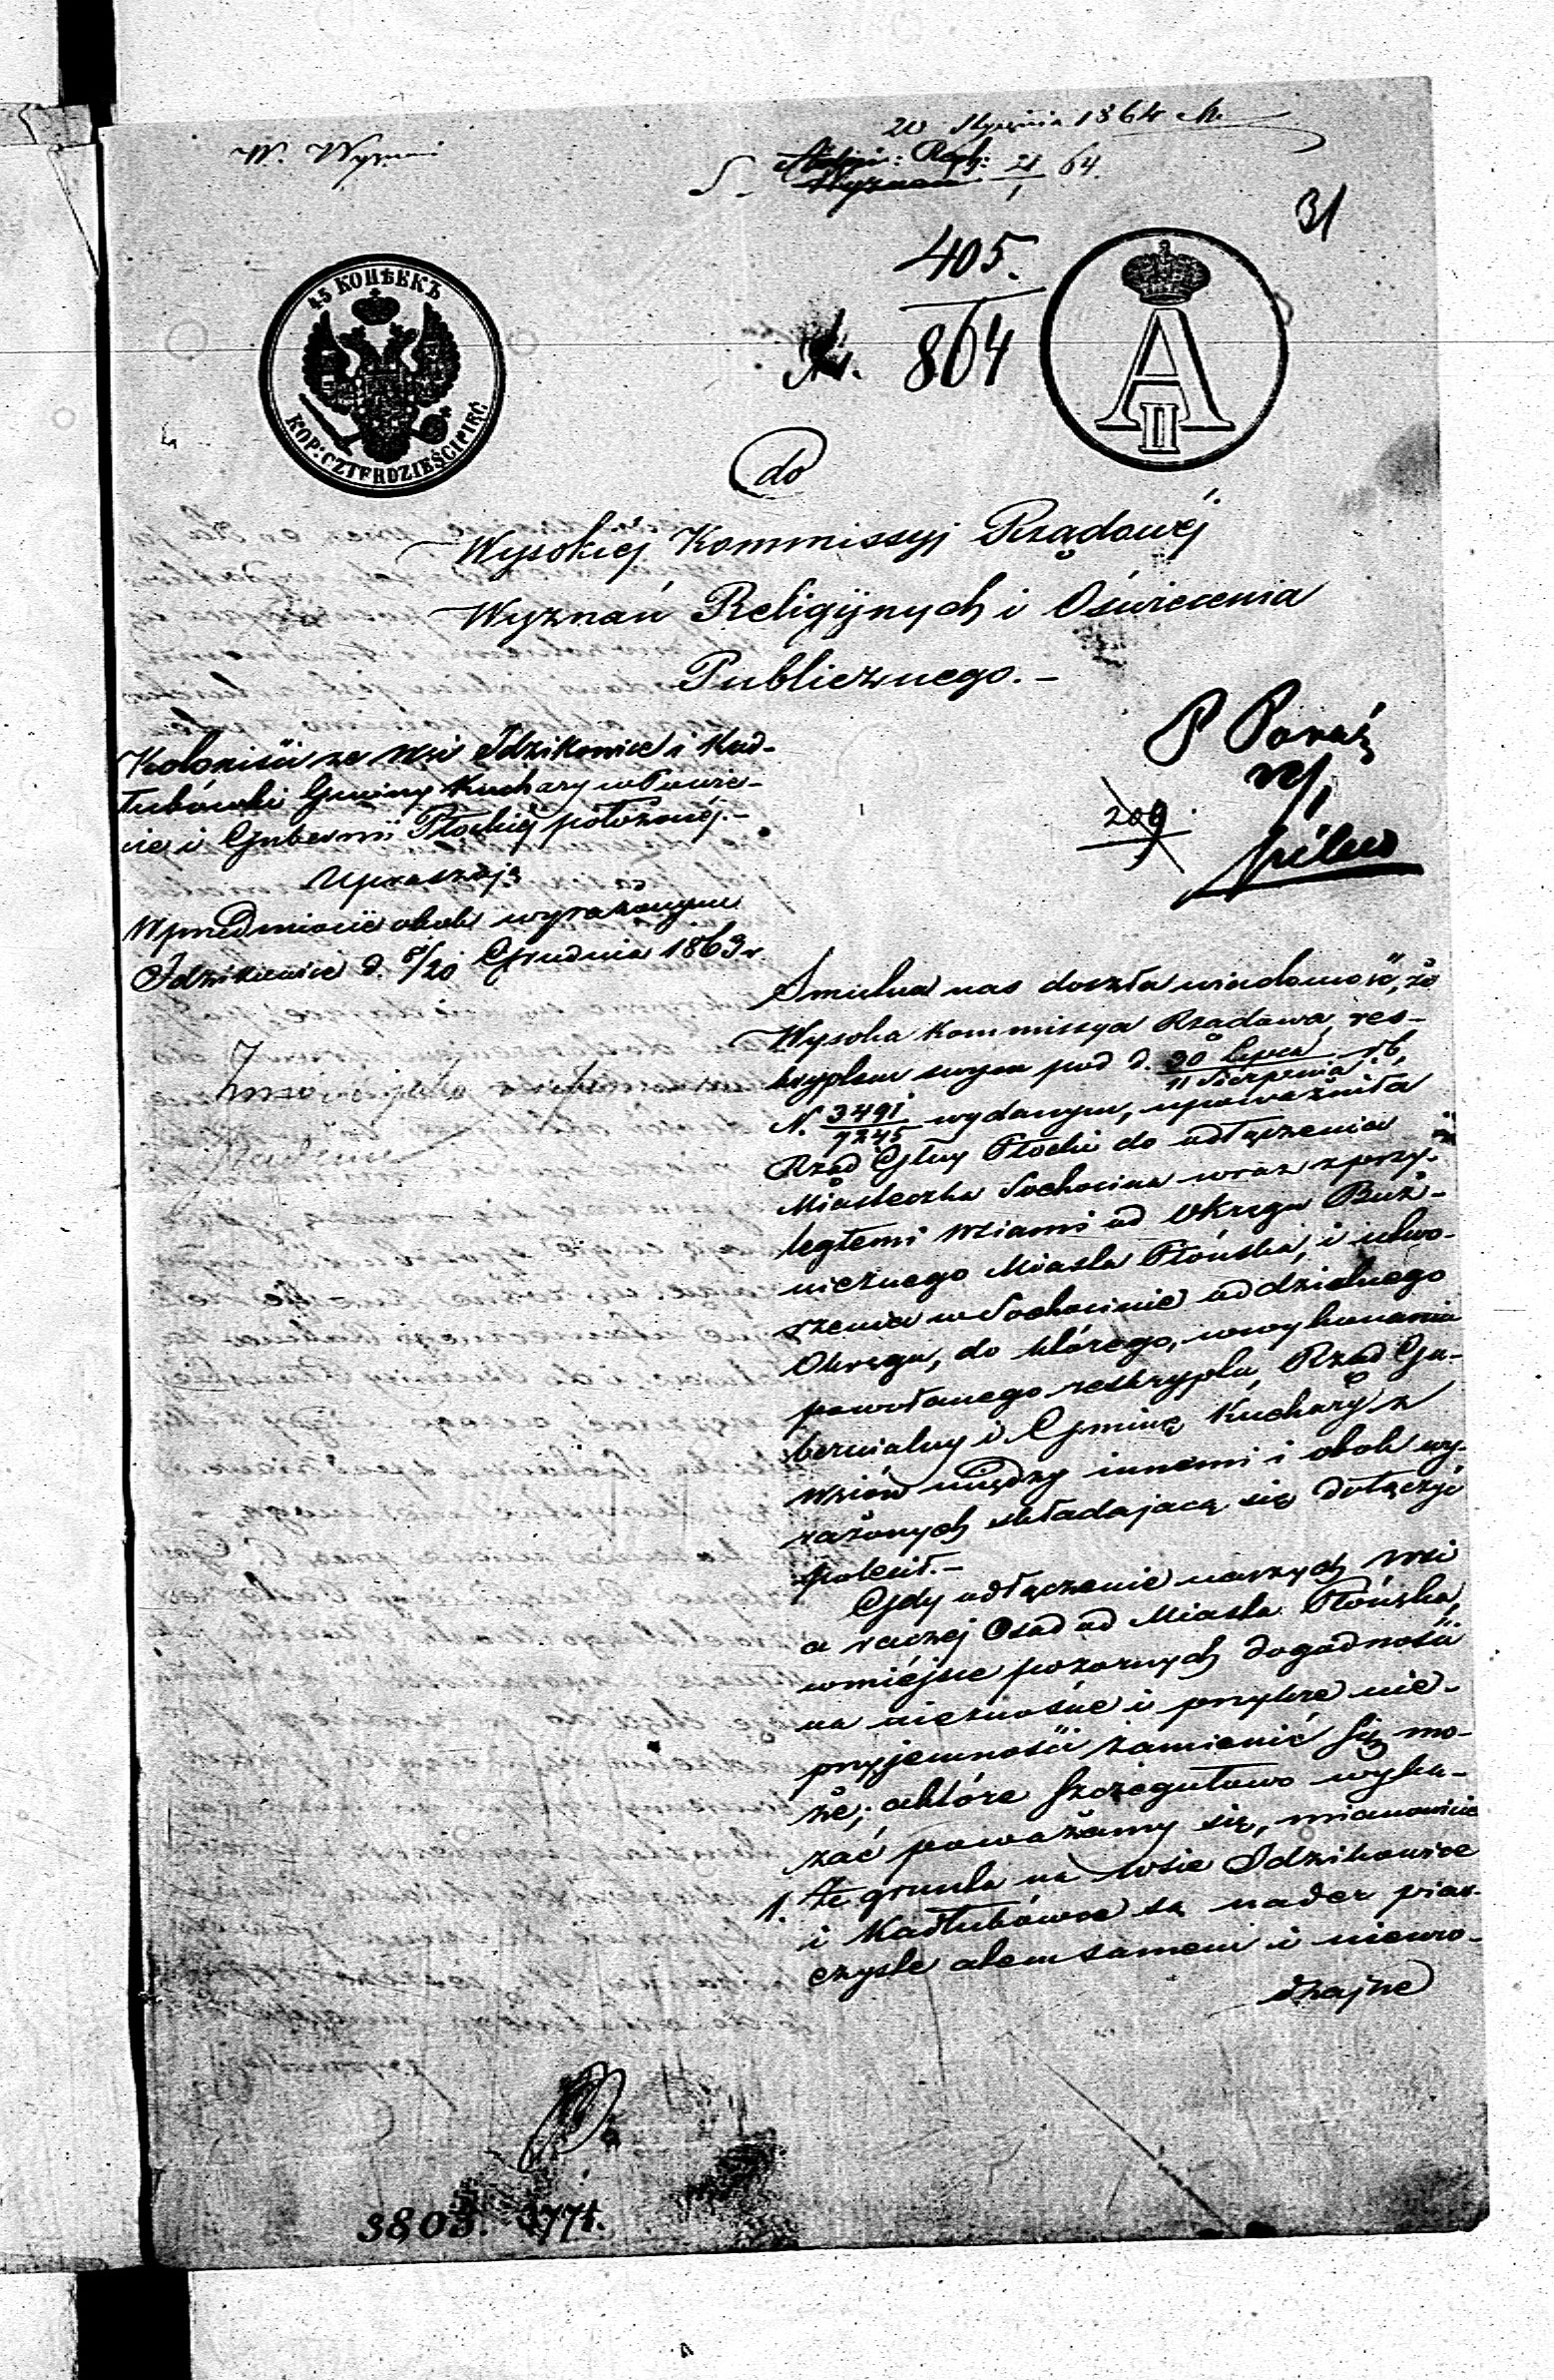 W. Wyznań
20 Stycznia 1864
21/1 64.
31
405.
864
45 КОПѢЕКЪ
КОР: CZTERDZIEŚCI PIĘĆ
A II
do
Wysokiéj Kommissyi Rządowéj
Wyznań Religijnych i Oświecenia
Publicznego. –
Kolonisci ze wsi Idzikowice i Kad-
łubówki Gminy Kuchary w Powie-
cie i Gubernii Płockiéj położonéj. –
Upraszają
W przedmiocie obok wyrażonym
Idzikowice d. 8/20 Grudnia 1863 r.
209
pilno
Smutna nas doszła wiadomość, że
Wysoka Kommissya Rządowa, res-
kryptem swym pod d. 30 Lipca / 11 Sierpnia r. b.
N. 3491/7245 wydanym, upoważniła
Rząd Gbny Płocki do odłączenia
Miasteczka Sochocina wraz z przy-
ległemi wsiami od Okręgu Bóż-
niczego Miasta Płońska, i utwo-
rzenia w Sochocinie oddzielnego
Okręgu, do którego, w wykonaniu
powołanego reskryptu, Rząd Gu-
bernialny i Gminę Kuchary z
wsiów między innemi i obok wy-
rażonych składającą się dołączyć
polecił. –
Gdy odłączenie naszych wsi
a raczej Osad od Miasta Płońska,
w miejsce pozornych dogodności
na nieznośne i przykre nie-
przyjemności zamienić się mo-
że; a które szczegułowo wyka-
zać poważamy się, mianowicie
1. Że grunta na wsie Idzikowice
i Kadłubówce są nader pias-
czyste a tem samem i nieuro-
dzajne
3803. 3771.